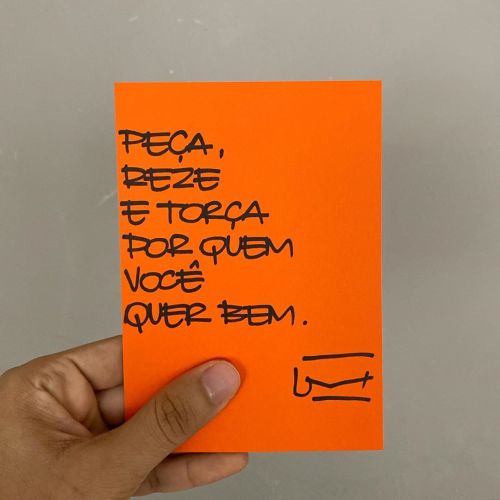 PEÇA,
REZE
E TORÇA
POR QUEM
VOCÊ
QUER BEM.